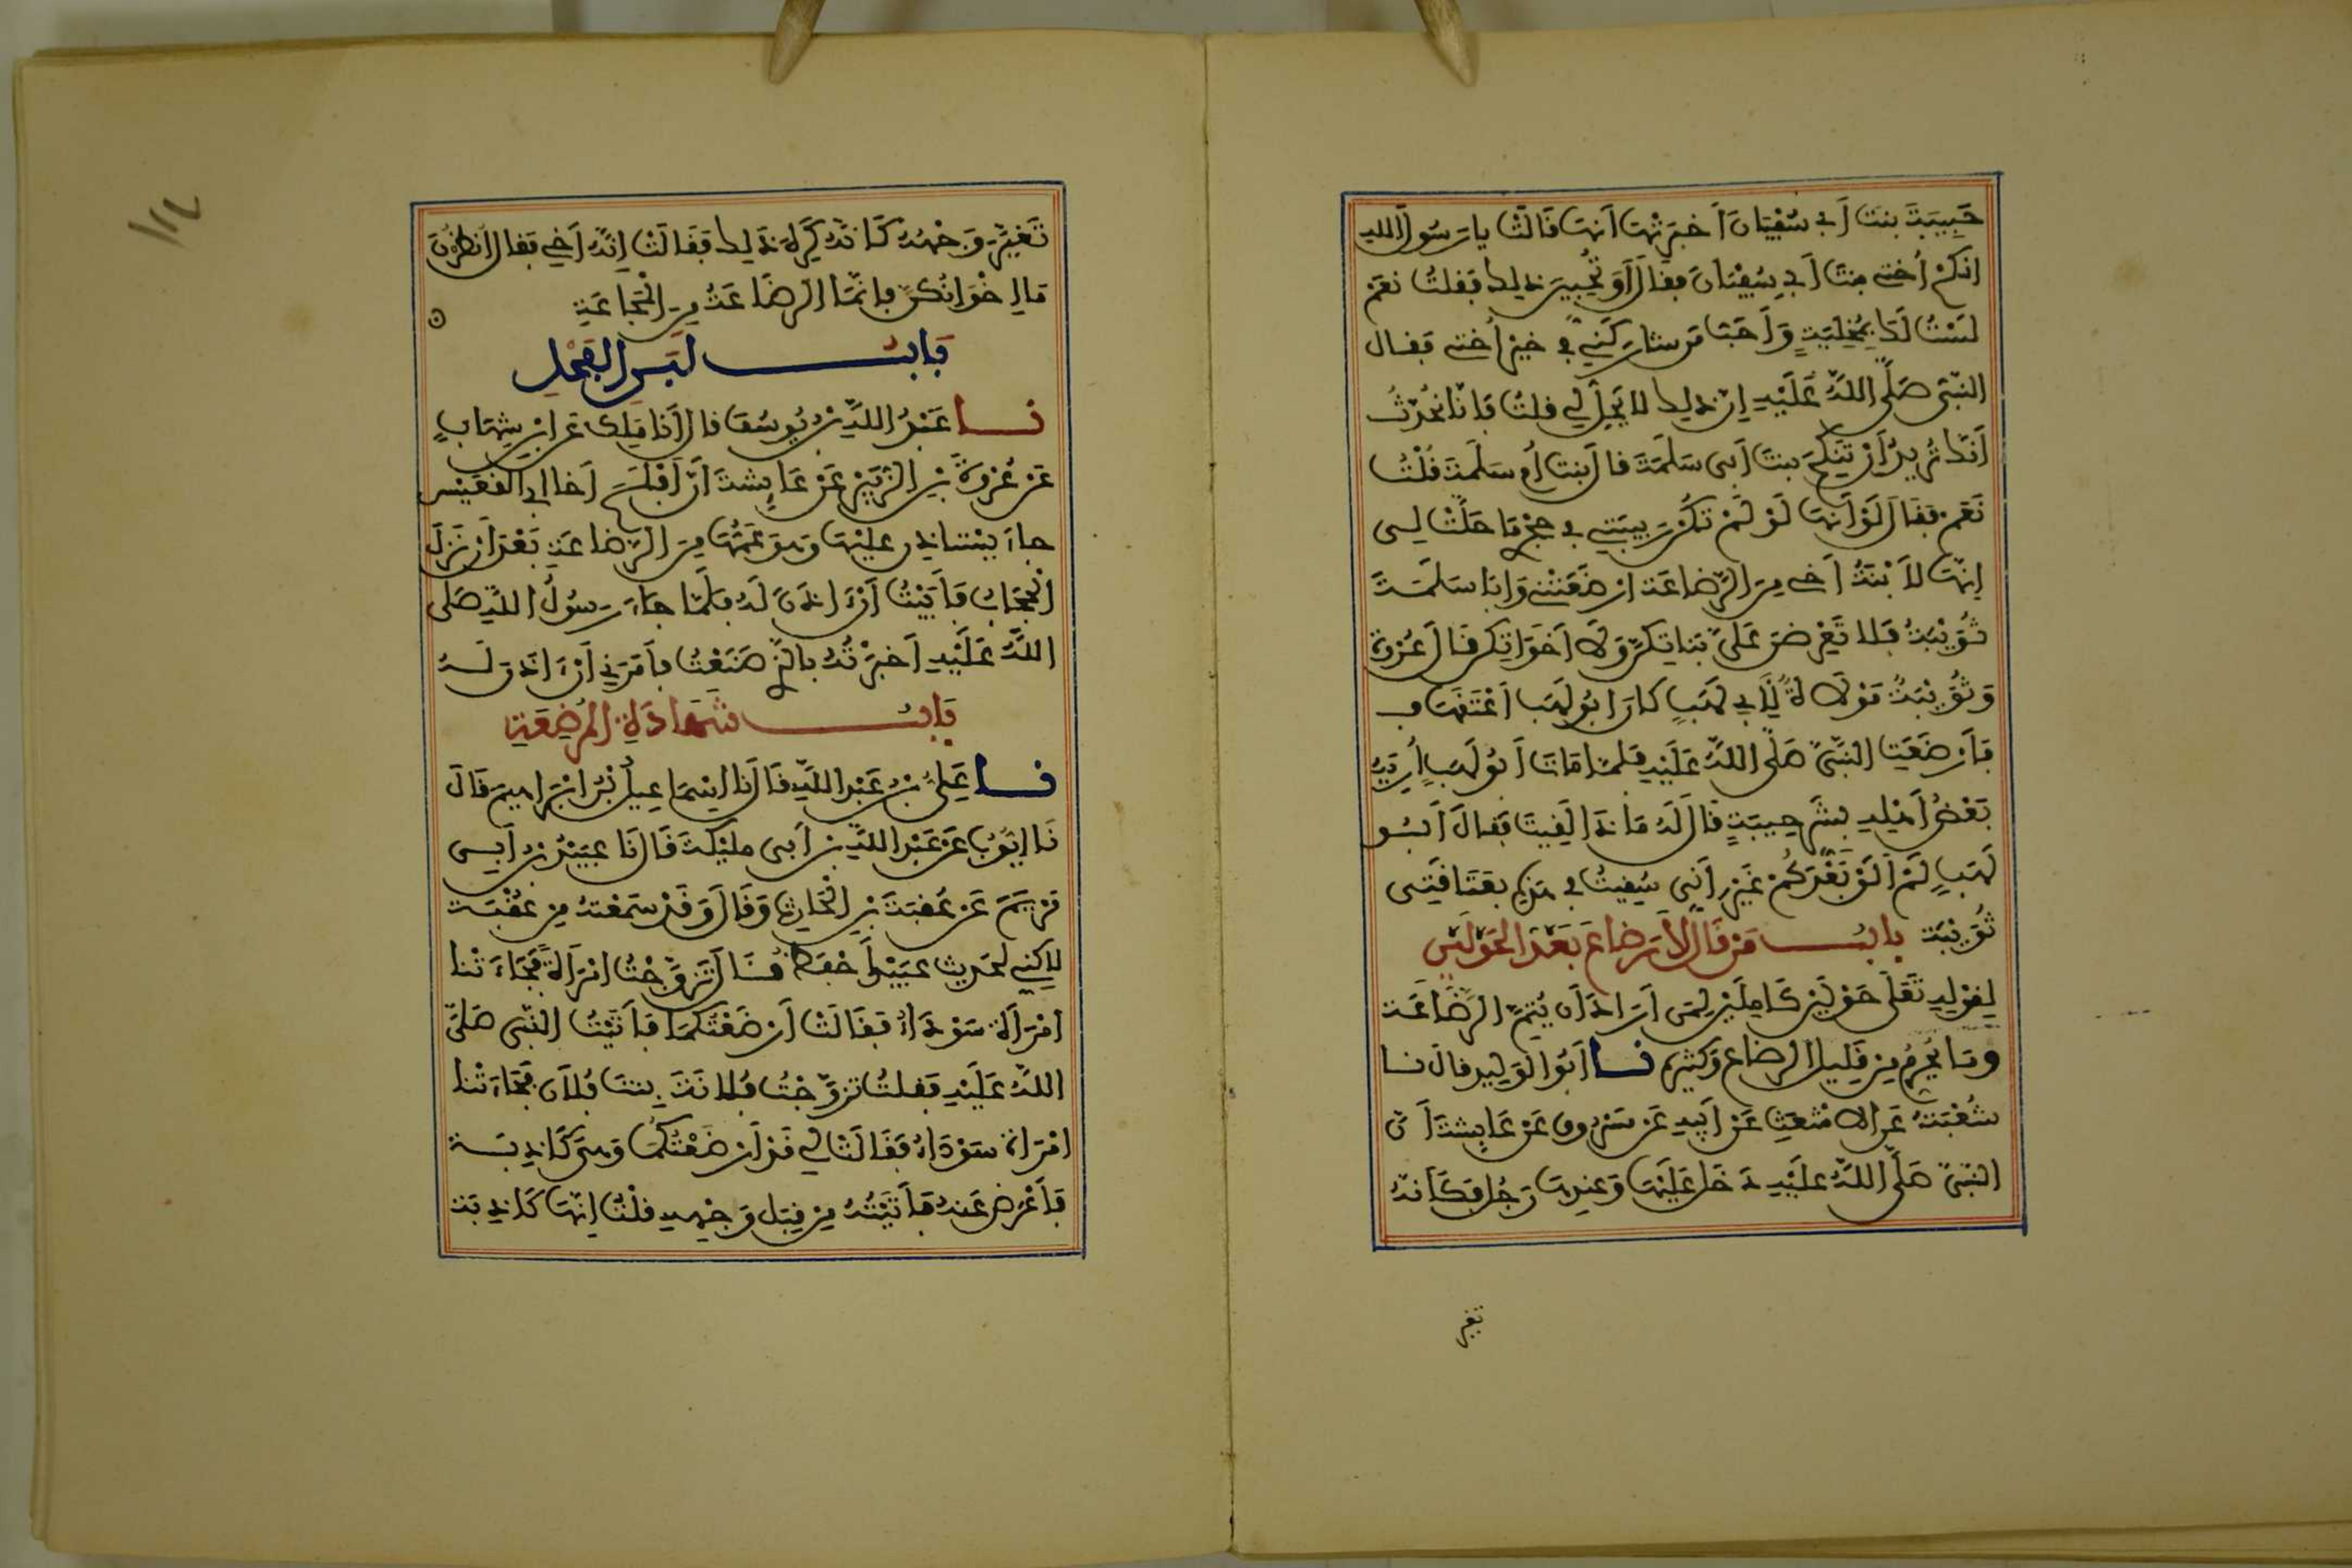 حَبِيبَةَ بنتَ أَبى سُفْيَانَ أَخبَرَتْهَا أنهَا قَالَتْ يا رَسُولَ اللهِ
انكحْ أُختى بنتَ أَبِي سُفْيَانَ فقالَ أَوَ تُحِبِّينَ ذلِكِ فقلتُ نعَمْ
لَسْتُ لَكَ بِمُخْلِيَةٍ وَأَحَبُّ مَن شارَكَنِي في خيْرٍ أُختى فقال
النبَّى صَلَّى اللهُ عَلَيْهِ إن ذلِكِ لا يَحِلُّ لِي قلتُ فَإنَّا نُحَدَّثُ
أَنَّكَ تُرِيدُ أَنْ تَنكِحَ بنتَ أَبى سَلَمَةَ قالَ بنتَ أُم سَلمَةَ قُلْتُ
نَعَمْ فقَالَ لَوْ أَنهَا لَوْ لَمْ تَكُنْ رَبِيبَتِى في حِجْرِى مَا حَلَّتْ لِى
إنهَا لاَبْنَةُ أَخى مِنَ الرَّضَاعَة ارْضَعَتْنِى وَابَا سَلَمَةَ
ثُوَيْبَةُ فَلا تَعْرِضْنَ عَلَىَّ بَنَاتِكنَّ وَلاَ أَخَوَاتِكن قَالَ عُرْوَة
وَثُوَيْبَةُ مَوْلاَةٌ لأَبِي لَهَبٍ كَانَ ابُو لَهَبٍ اعْتَقَهَا
فَأَرْضَعَتِ النَّبىَّ صَلَّى اللهُ عَلَيْهِ فَلَمَّا مَاتَ أَبُو لَهَبٍ أُرِيَهُ
بَعْضُ أَهْلِهِ بِشَرِّ حِيبَةٍ قَالَ لَهُ مَاذَا لَقِيتَ فقَالَ أَبُو
لَهَبٍ لَمْ أَلقَ بَعْدَكُمْ غَيْرَ أَنِّى سُقِيتُ في هَذِهِ بعَتَاقَتِى
ثُوَيْبَة بابُ مَن قَالَ لاَ رَضاعَ بَعْدَ الحَوْلَيْنِ
لِقوْلِهِ تَعَلَى حَوْلَيْنِ كَامِلَيْنِ لِمَن أَرَادَ أَن يُتِمَّ الرَّضَاعَة
وَمَا يُحَرِّمُ مِن قَلِيلِ الرَضاعِ وَكثِيرِهِ نا أَبُو الْوَلِيدِ قال نا
شُعْبَةُ عَن الاَشْعَثِ عَنْ أَبِيهِ عَن مَسْرُوقٍ عَن عَايشَةَ أَنَّ
النَّبىَّ صَلَّى اللهُ عَلَيْهِ دَخَلَ عَلَيْهَا وَعِندهَا رَجُلٌ فَكَأَنهُ
تغير
تَغَيَّرَ وَجْهُهُ كَأَنَّهُ كَرِهَ ذَلِكَ فَقَالَتْ إنَّهُ أَخِي فقَالَ انظُرْنَ
مَا إخْوَانُكُنَّ فإِنَّمَا الرضَاعَةُ مِنَ الْمَجَاعَةِ
بَابُ لَبَنِ الْفَحْلِ
نا عَبْدُ اللهِ بْنُ يُوسُفَ قالَ أنا مَلِك عَن ابْنِ شِهَابٍ
عَن عُرْوَةَ بْنِ الزُّبَيْرِ عَنْ عَايِشَةَ أَنَّ أَفْلَحَ أَخَا ابى القُعَيْسِ
جاءَ يَسْتَاذِن عَلَيْهَا وَهوَ عَمُّهَا مِنَ الرَّضَاعَةِ بَعْدَ أَن نَزَلَ
الْحِجَابُ فَأَبَيْتُ أَنْ اذَنَ لَهُ فَلَمَّا جَاءَ رَسُولُ اللهِ صَلَّى
اللهُ عَلَيْهِ أَخبَرْتُهُ بالَّذِى صَنَعْتُ فأَمَرَنِي أَنْ اذَنَ لَهُ
بَابُ شَهَادَةِ المُرْضِعَةِ
نا عَلِىُّ بْنُ عَبْدِ اللهِ قَالَ نَا إسْمَاعِيلُ بْنُ ابْرَاهِيمَ قَالَ
نَا أَيُّوبُ عَن عَبْدِ اللهِ بْنِ أَبى مليْكَةَ قَالَ نَا عبَيْدُ بْنُ أَبِى
مَرْيَمَ عَن عُقبَةَ بْنِ الْحَارِثِ وَقَالَ وَقَدْ سَمعْتهُ مِن عُقْبَة
لاكِنِّى لحَدِيثِ عبَيْدٍ أَحْفَظُ قَالَ تَزَوَّجْتُ امْرَأَةً فَجَاءَتْنا
امْرَأَة سَوْدَاءُ فقَالَتْ أَرْضَعْتُكُمَا فَأَتَيْتُ النَّبى صَلَّى
اللهُ عَلَيْهِ فقلتُ تزَوَّجْتُ فُلانَةَ بنتَ فُلاَنٍ فَجَاءَتْنا
امْرَأة سَوْدَاءُ فَقَالَتْ لِي قَدْ أَرْضَعْتُكُمَا وَهِىَ كَاذِبَة
فَأَعْرَضَ عَنهُ فأَتَيْتُهُ مِن قِبَلِ وَجْهِهِ قلْتُ إنَّهَا كَاذِبَة